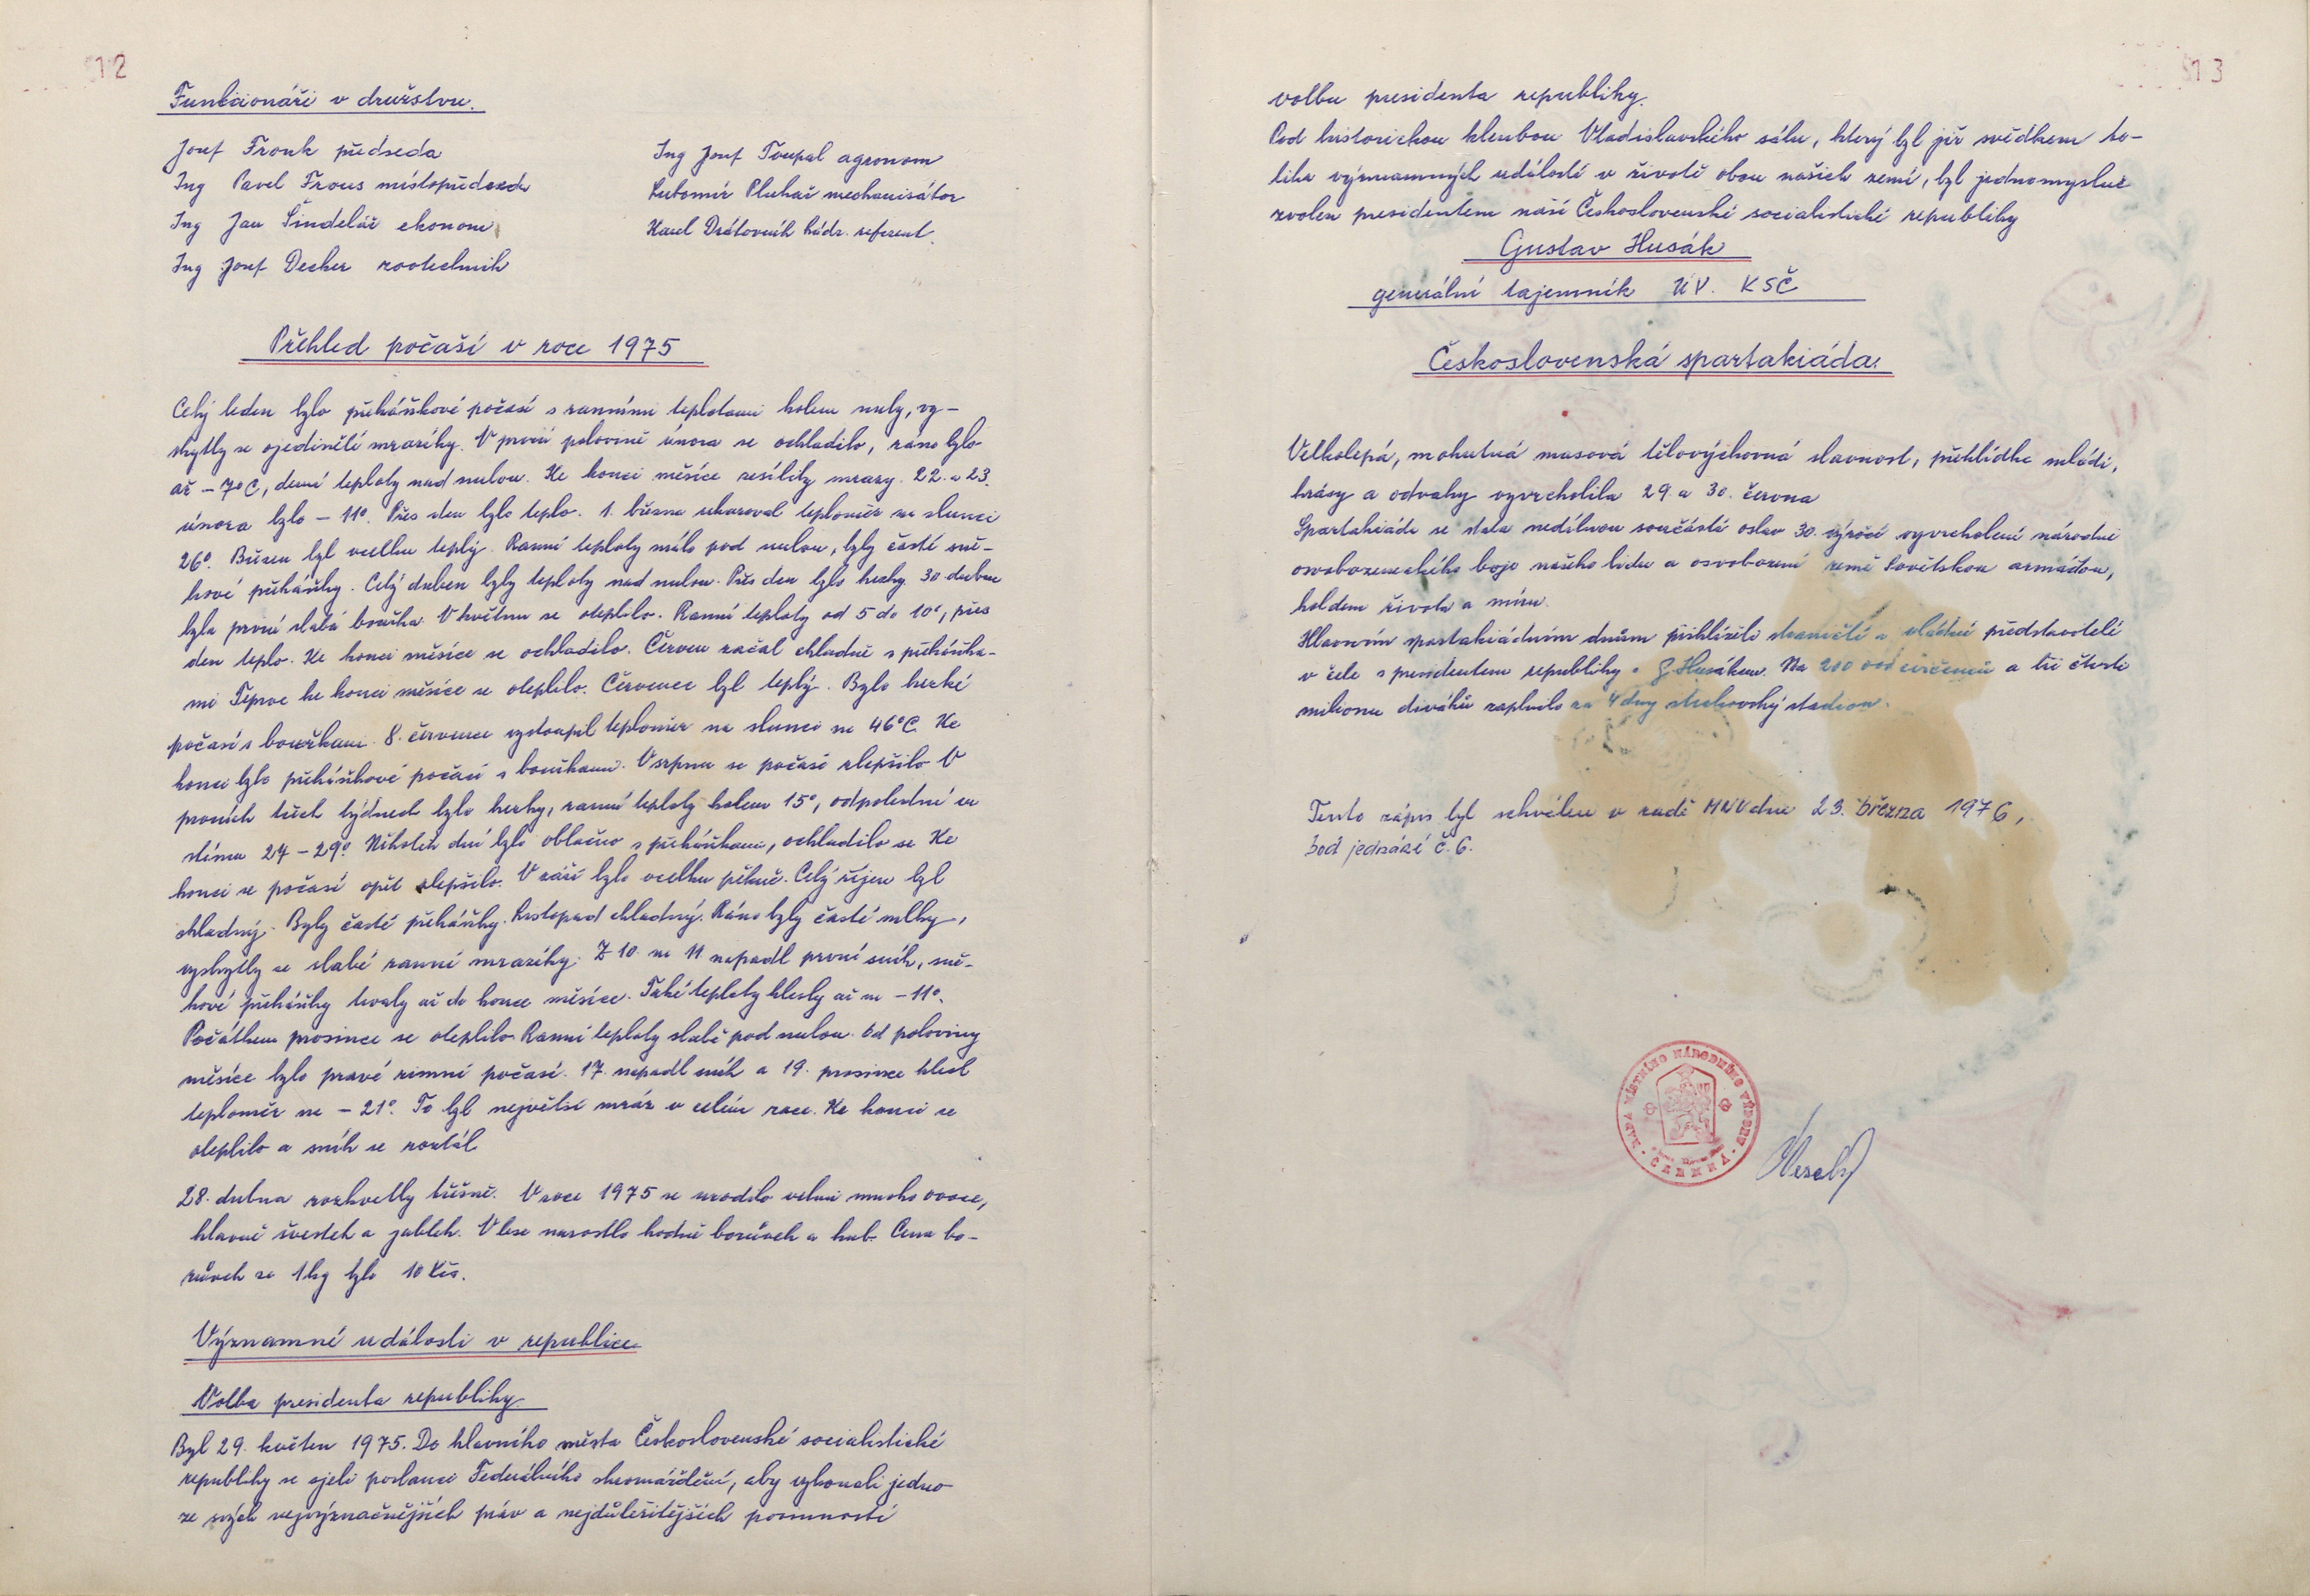 12
Funkcionáři v družstvu.
Josef Fronk předseda
Ing Pavel Frous místopředseda
Ing Jan Šindelář ekonom
Ing Josef Decker zootechnik
Ing Josef Toupal agronom
Lubomír Pluhař mechanisátor
Karel Drátovník kádr. referent.
Přehled počaší v roce 1975
Celý leden bylo přeháňkové počasí s ranními teplotami kolem nuly, vy-
skytly se ojedinělé mrazíky. V první polovině února se ochladilo, ráno bylo
až -7°C, denní teploty nad nulou. Ke konci měsíce zesílily mrazy. 22. a 23.
února bylo -11°. Přes den bylo teplo. 1. března ukazoval teploměr na slunci
26°. Březen byl vcelku teplý. Ranní teploty málo pod nulou, byly časté sně-
hové přeháňky. Celý duben byly teploty nad nulou. Přes den bylo hezky. 30 dubna
byla první slabá bouřka. V květnu se oteplilo. Ranní teploty od 5 do 10°, přes
den teplo. Ke konci měsíce se ochladilo. Červen začal chladně s přeháňka-
mi Teprve ke konci měsíce se oteplilo. Červenec byl teplý. Bylo hezké
počasí s bouřkami. 8. července vystoupil teploměr na slunci na 46°C. Ke
konci bylo přeháňkové počasí s bouřkami. V srpnu se počasí zlepšilo V
prvních třech týdnech bylo hezky, ranní teploty kolem 15°, odpolední ve
stínu 27-29°. Několik dní bylo oblačno s přeháňkami, ochladilo se Ke
konci se počasí opět zlepšilo. V září bylo vcelku pěkně. Celý říjen byl
chladný. Byly časté přeháňky. Listopad chladný. Ráno byly časté mlhy,
vyskytly se slabé ranní mrazíky. Z 10. na 11 napadl první sníh, sně-
hové přeháňky trvaly až do konce měsíce. Také teploty klesly až na -11°.
Počátkem prosince se oteplilo. Ranní teploty slabě pod nulou. Od poloviny
měsíce bylo pravé zimní počasí. 17. napadl sníh a 19. prosince klesl
teploměr na -21°. To byl největší mráz v celém roce. Ke konci se
oteplilo a sníh se roztál
28. dubna rozkvetly třešně. V roce 1975 se urodilo velmi mnoho ovoce,
hlavně švestek a jablek. V lese narostlo hodně borůvek a hub. Cena bo-
růvek za 1kg bylo 10 Kčs.
Významné události v republice
Volba presidenta republiky
Byl 29. květen 1975. Do hlavního města Československé socialistické
republiky se sjeli poslanci Federálního shromáždění, aby vykonali jedno
ze svých nejvýznačnějších práv a nejdůležitějších povinností
13
volbu presidenta republiky.
Pod historickou klenbou Vladislavského sálu, který byl již svědkem to-
lika významných událostí v životě obou našich zemí, byl jednomyslně
zvolen presidentem naší Československé socialistické republiky
Gustav Husák
generální tajemník ÚV. KSČ
Československá spartakiáda.
Velkolepá, mohutná masová tělovýchovná slavnost, přehlídka mládí,
krásy a odvahy vyvrcholila 29. a 30. června
Spartakiáda se stala nedílnou součástí oslav 30. výročí vyvrcholení národně
osvobozeneckého boje našeho lidu a osvobození země Sovětskou armádou,
holdem života a míru.
Hlavním spartakiádním dnům přihlíželi straničtí a vládní představitelé
v čele s presidentem republiky s G. Husákem. Na 200 000 cvičenců a tři čtvrti
milionu diváků zaplnilo za 4 dny strahovský stadion.
Tento zápis byl schválen v radě MNV dne 23. března 1976,
bod jednání č. 6.
RADA MÍSTNÍHO NÁRODNÍHO VÝBORU
ČERMNÁ
Veselý